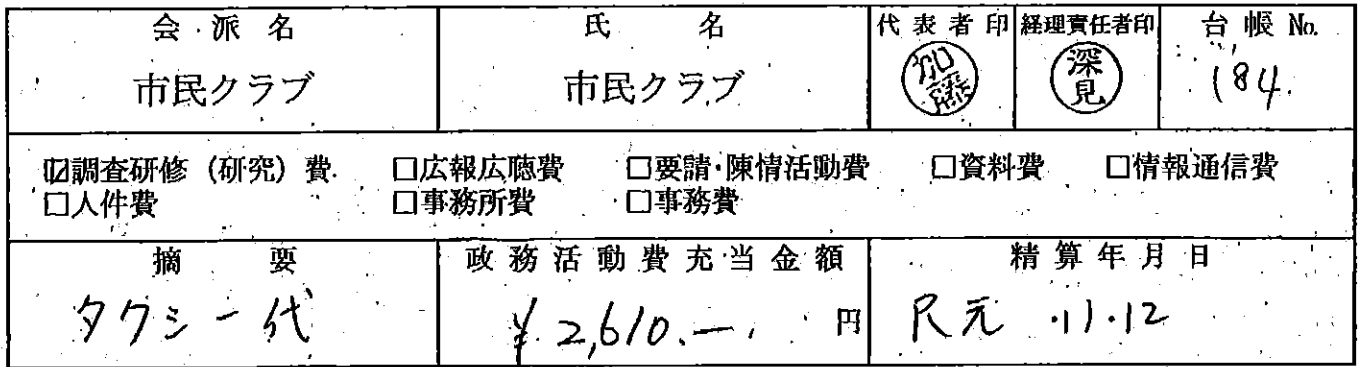 会派名 氏名 代表者印 経理責任者印 台帳No.
市民クラブ 市民クラブ 加藤 深見 184.
☑調査研修(研究)費 □広報広聴費 □要請・陳情活動費 □資料費 □情報通信費
□人件費 □事務所費 □事務費
摘要 政務活動費充当金額 精算年月日
タクシー代 ¥2,610.― 円 R元.11.12